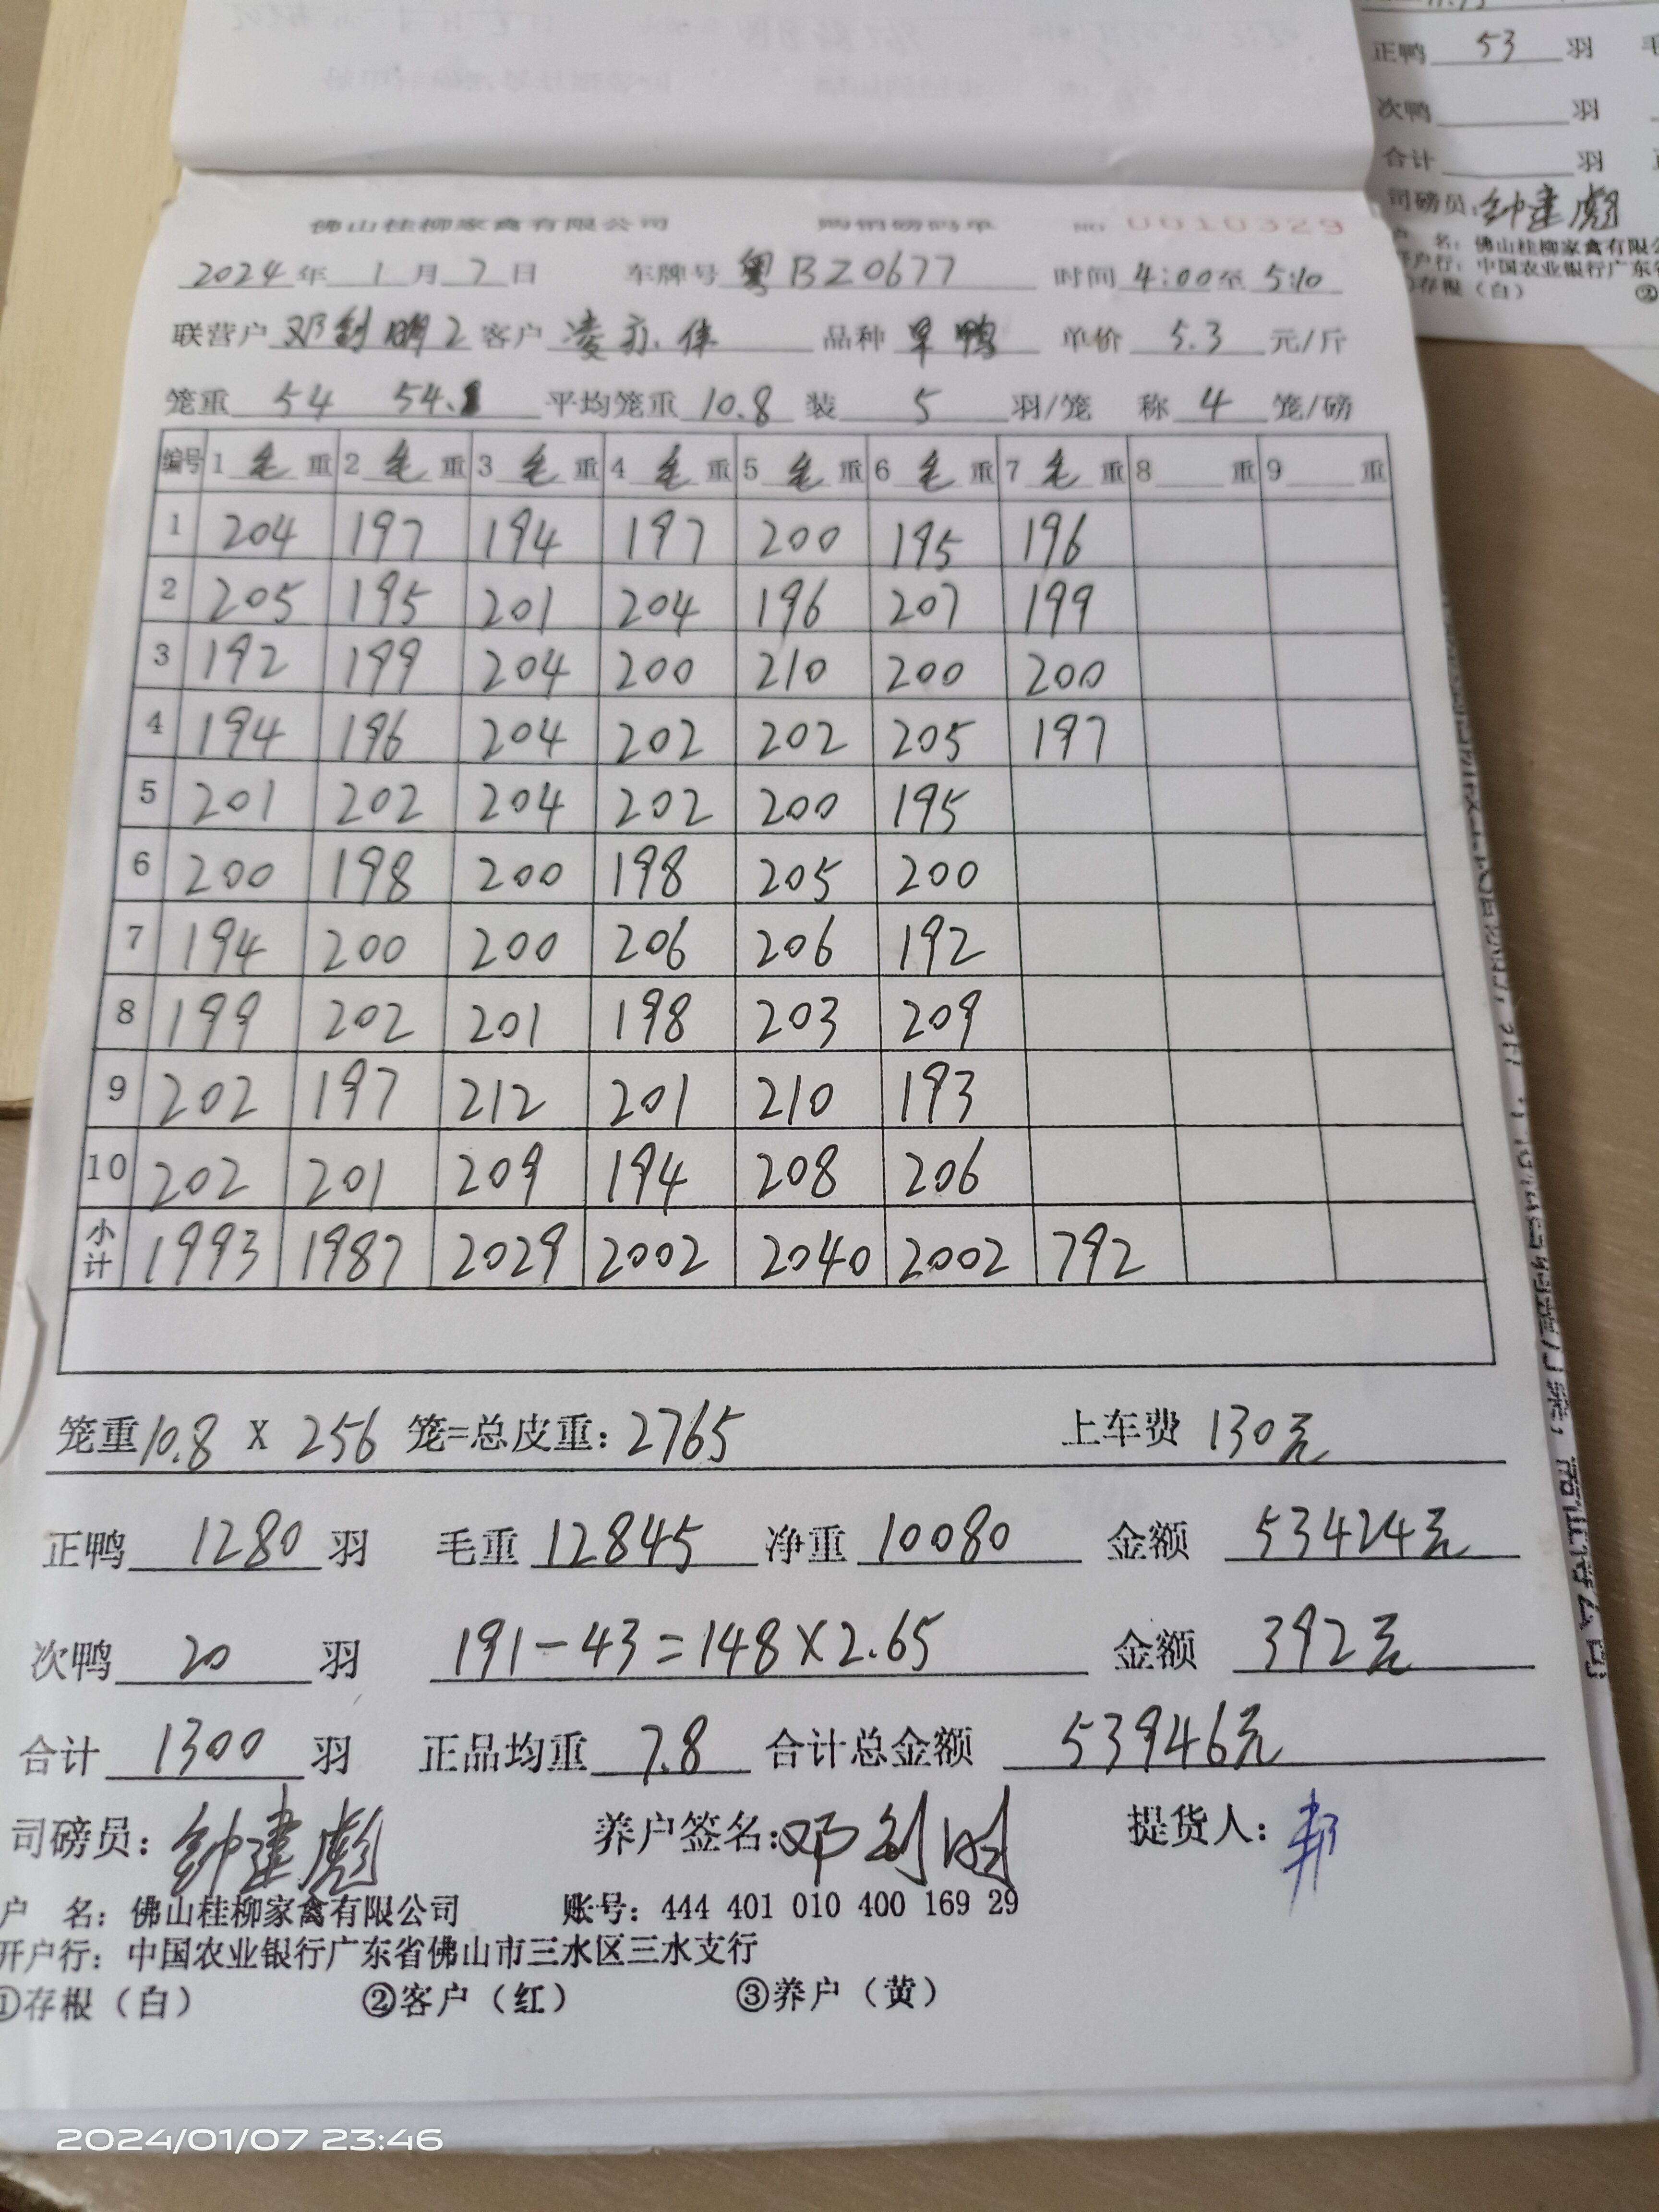 正鸭 53 羽
次鸭 羽
合计 羽
司磅员: 钟建彪
户 名: 佛山桂柳家禽有限公
开户行: 中国农业银行广东省
存根（白） ②
佛山桂柳家禽有限公司 购销磅码单 NO 0010329
2024 年 1 月 7 日 车牌号 粤BZ0677 时间 4:00 至 5:10
联营户 邓剑明2 客户 凌亦佳 品种 旱鸭 单价 5.3 元/斤
笼重 54 54. 平均笼重 10.8 装 5 羽/笼 称 4 笼/磅
编号 1 毛 重 2 毛 重 3 毛 重 4 毛 重 5 毛 重 6 毛 重 7 毛 重 8 重 9 重
1 204 197 194 197 200 195 196
2 205 195 201 204 196 207 199
3 192 199 204 200 210 200 200
4 194 196 204 202 202 205 197
5 201 202 204 202 200 195
6 200 198 200 198 205 200
7 194 200 200 206 206 192
8 199 202 201 198 203 209
9 202 197 212 201 210 193
10 202 201 209 194 208 206
小计 1993 1987 2029 2002 2040 2002 792
笼重 10.8 X 256 笼=总皮重: 2765 上车费 130元
正鸭 1280 羽 毛重 12845 净重 10080 金额 53424元
次鸭 20 羽 191-43=148×2.65 金额 392元
合计 1300 羽 正品均重 7.8 合计总金额 53946元
司磅员: 钟建彪 养户签名: 邓剑明 提货人:
户 名: 佛山桂柳家禽有限公司 账号: 444 401 010 400 169 29
开户行: 中国农业银行广东省佛山市三水区三水支行
①存根（白） ②客户（红） ③养户（黄）
2024/01/07 23:46